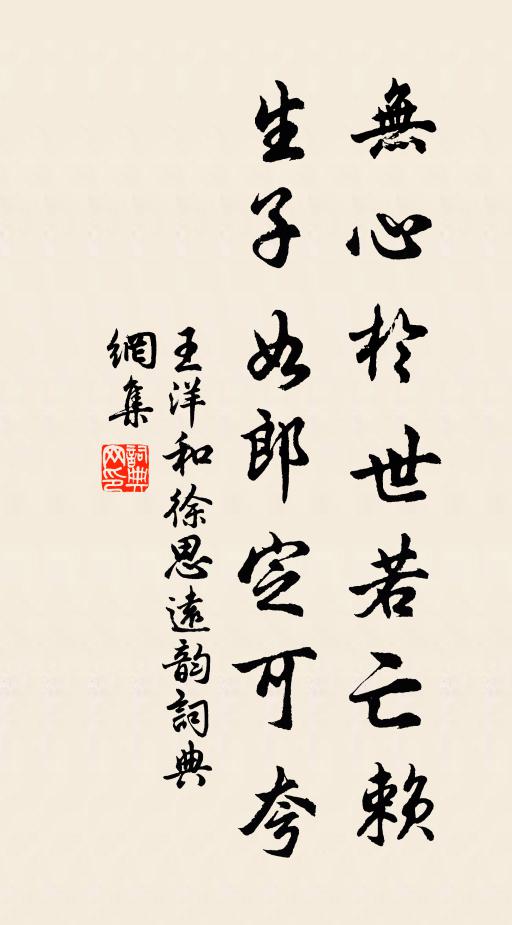 無心於世若亡賴
生子如郎定可夸
王洋和徐思遠韵詞典
網集
詞典網印